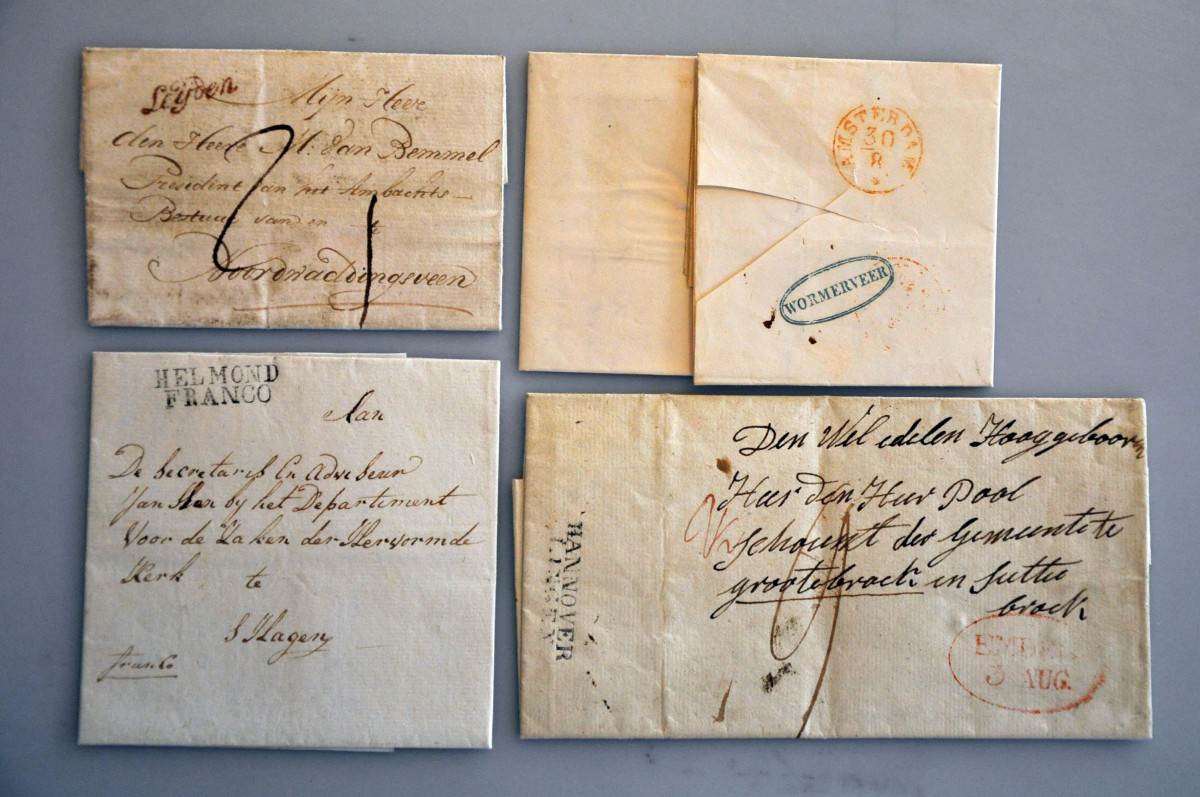 Leijden
Mijn Heer
den Heere M: van Bemmel
President van het Ambachts-
Bestuur van en
Noordwaddingsveen
AMSTERDAM
30
8
WORMERVEER
HELMOND
FRANCO
Aan
De Secretaris En Adviseur
Jan by het Departement
Voor de Zaken der Hervormde
Kerk te
S Hagen
franco
Den Wel edelen Hooggebooren
Heer den Heer Pool
Schouut der Gemeente te
grootebroek in Lutte
broek
HANNOVER
EMDEN
3 AUG.